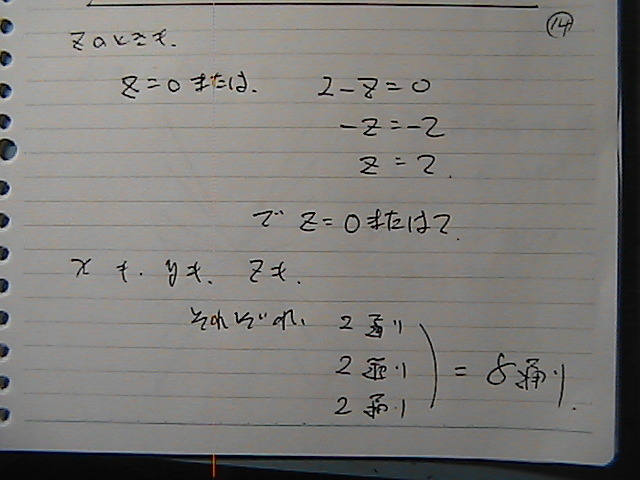 ⑭
zのときも.
z=0 または. 2-z=0
-z=-2
z=2.
で z=0または2.
x も. yも. zも.
それぞれ. 2通り
2通り
2通り
= 8通り.